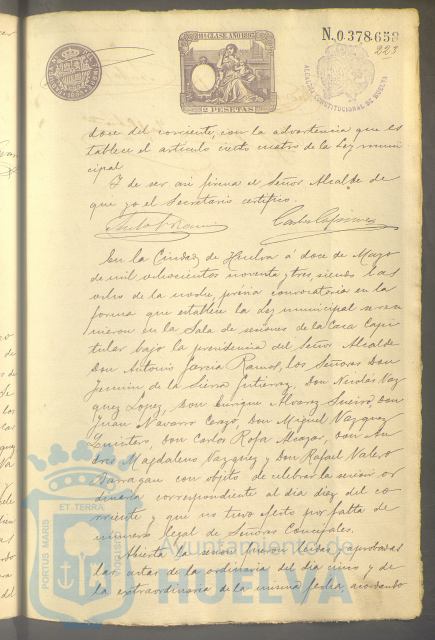 N. 0.378.659
223
11ª CLASE AÑO 1893
2 PESETAS
ALCALDIA CONSTITUCIONAL DE HUELVA
doce del corriente, con la advertencia que es
tablece el artículo ciento cuatro de la Ley muni
cipal
Y de ser así firma el Señor Alcalde de
que yo el Secretario certifico.
En la Ciudad de Huelva á doce de Mayo
de mil ochocientos noventa y tres, siendo las
ocho de la noche, prévia convocatoria en la
forma que establece la Ley municipal se reu
nieron en la Sala de sesiones de la Casa Capi
tular bajo la presidencia del Señor Alcalde
Don Antonio García Ramos, los Señores Don
Fermin de la Sierra Gutierrez, Don Nicolás Vaz
quez Lopez, Don Enrique Alvarez Sueiro, Don
Juan Navarro Don Miguel Vazquez
Don Carlos Rofa Don An
drés Magdaleno Vazquez y Don Rafael Valero
Barragan con objeto de celebrar la sesion or
dinaria correspondiente al dia diez del co
rriente y que no tuvo efecto por falta de
número legal de Señores Concejales.
Abierta la sesion fueron leidas y aprobadas
las actas de la ordinaria del dia cinco y de
la extraordinaria de la misma fecha, acordando
PORTUS MARIS ET TERRAE CUSTODIA
Ayuntamiento de
HUELVA